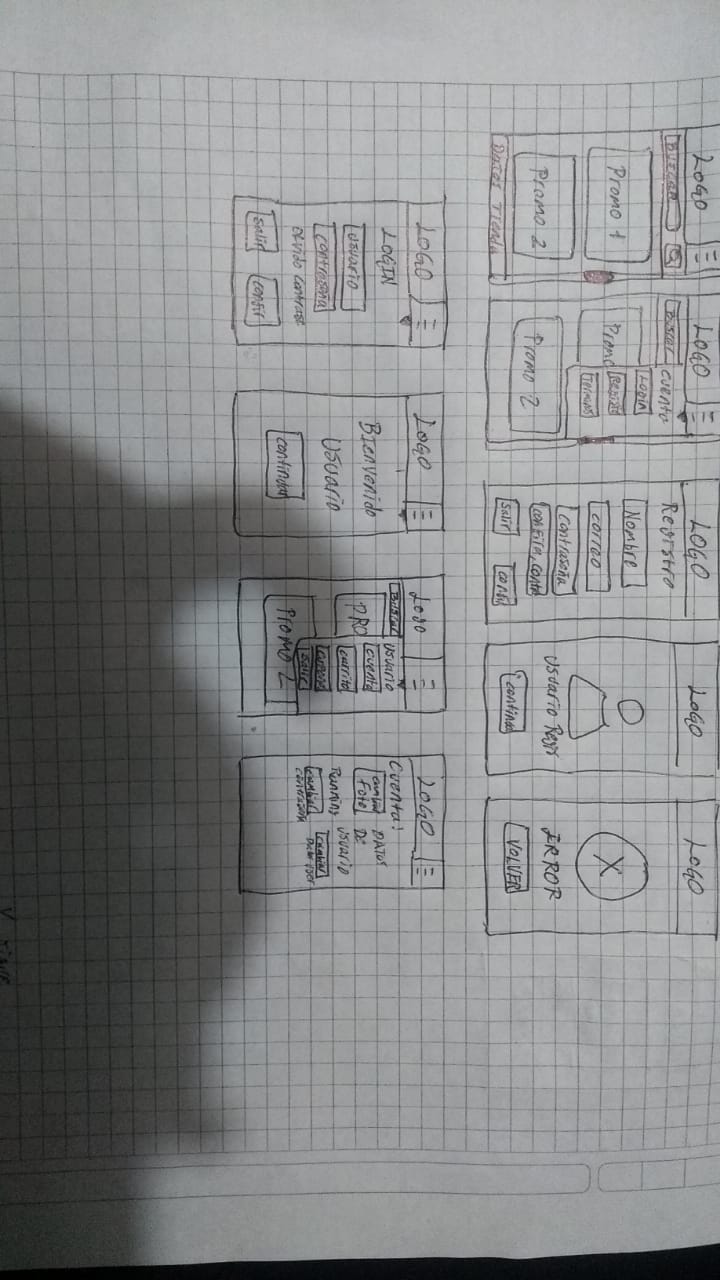 LOGO
Buscar
Promo 1
Promo 2
Datos Tienda
LOGO
Buscar
Cuenta
Login
Registro
Terminos
Promo
Promo 2
LOGO
Registro
Nombre
correo
Contraseña
Confira, Contr
Salir
Confi
LOGO
Usuario Regis
Continua
LOGO
X
ERROR
VOLVER
LOGO
LOGIN
Usuario
Contraseña
Olvido Contrase
Salir
Confir
LOGO
Bienvenido
Usuario
Continuar
Logo
Buscar
Usuario
Cuenta
Carrito
Salir
PRO
Promo 2
LOGO
Cuenta!
Cambiar
Foto
DATOS
DE
Usuario
Running
Cambiar
Contraseña
Cambiar
Datos User